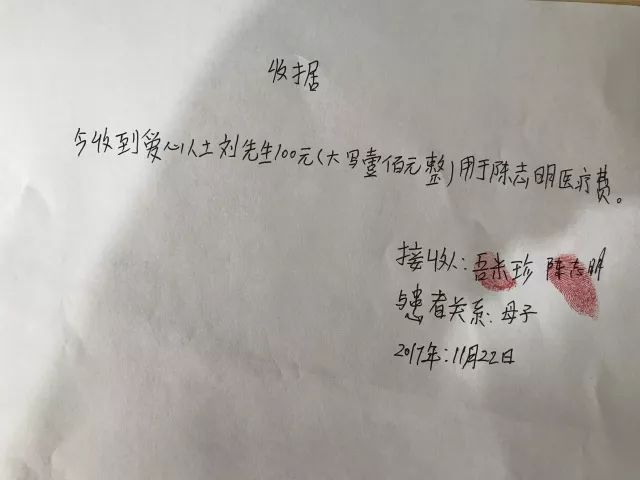 收据
今收到爱心人士刘先生100元(大写壹佰元整)用于陈志明医疗费。
接收人:吾米珍 陈志明
与患者关系:母子
2017年:11月22日